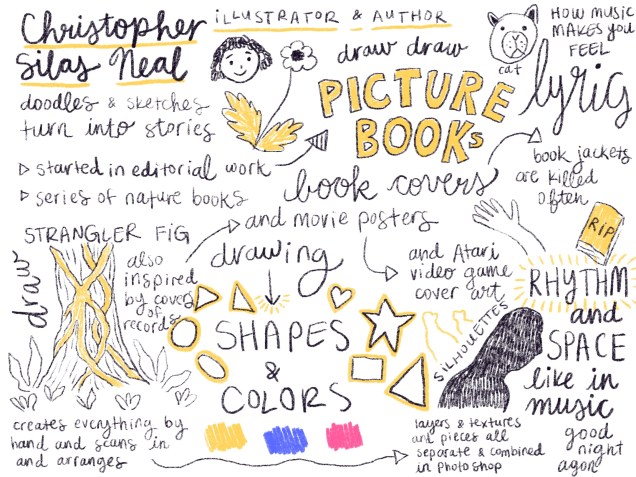 Christopher
Silas Neal
ILLUSTRATOR & AUTHOR
doodles & sketches
turn into stories
▷ started in editorial work
▷ series of nature books
draw draw
PICTURE
BOOKs
cat
HOW MUSIC
MAKES YOU
FEEL
lyric
book covers
book jackets
are killed
often
RIP
and movie posters
STRANGLER FIG
draw
also
inspired
by cover
of
records
drawing
SHAPES
&
COLORS
and Atari
video game
cover art
SILHOUETTES
RHYTHM
and
SPACE
like in
music
good
night
agon
creates everything by
hand and scans in
and arranges
layers & textures
and pieces all
separate & combined
in photoshop